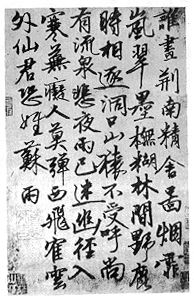 誰畫荊南精舍圖烟霏
嵐翠墨橅糊林間野鹿
時相逐洞口山猿不受呼尚
有流泉悲夜雨已迷徑入
寒蕪癡人莫彈西飛寉雲
外仙君恐姓蘇雨